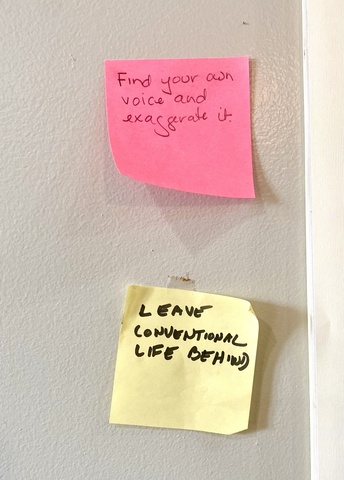 Find your own
voice and
exaggerate it.
LEAVE
CONVENTIONAL
LIFE BEHIND